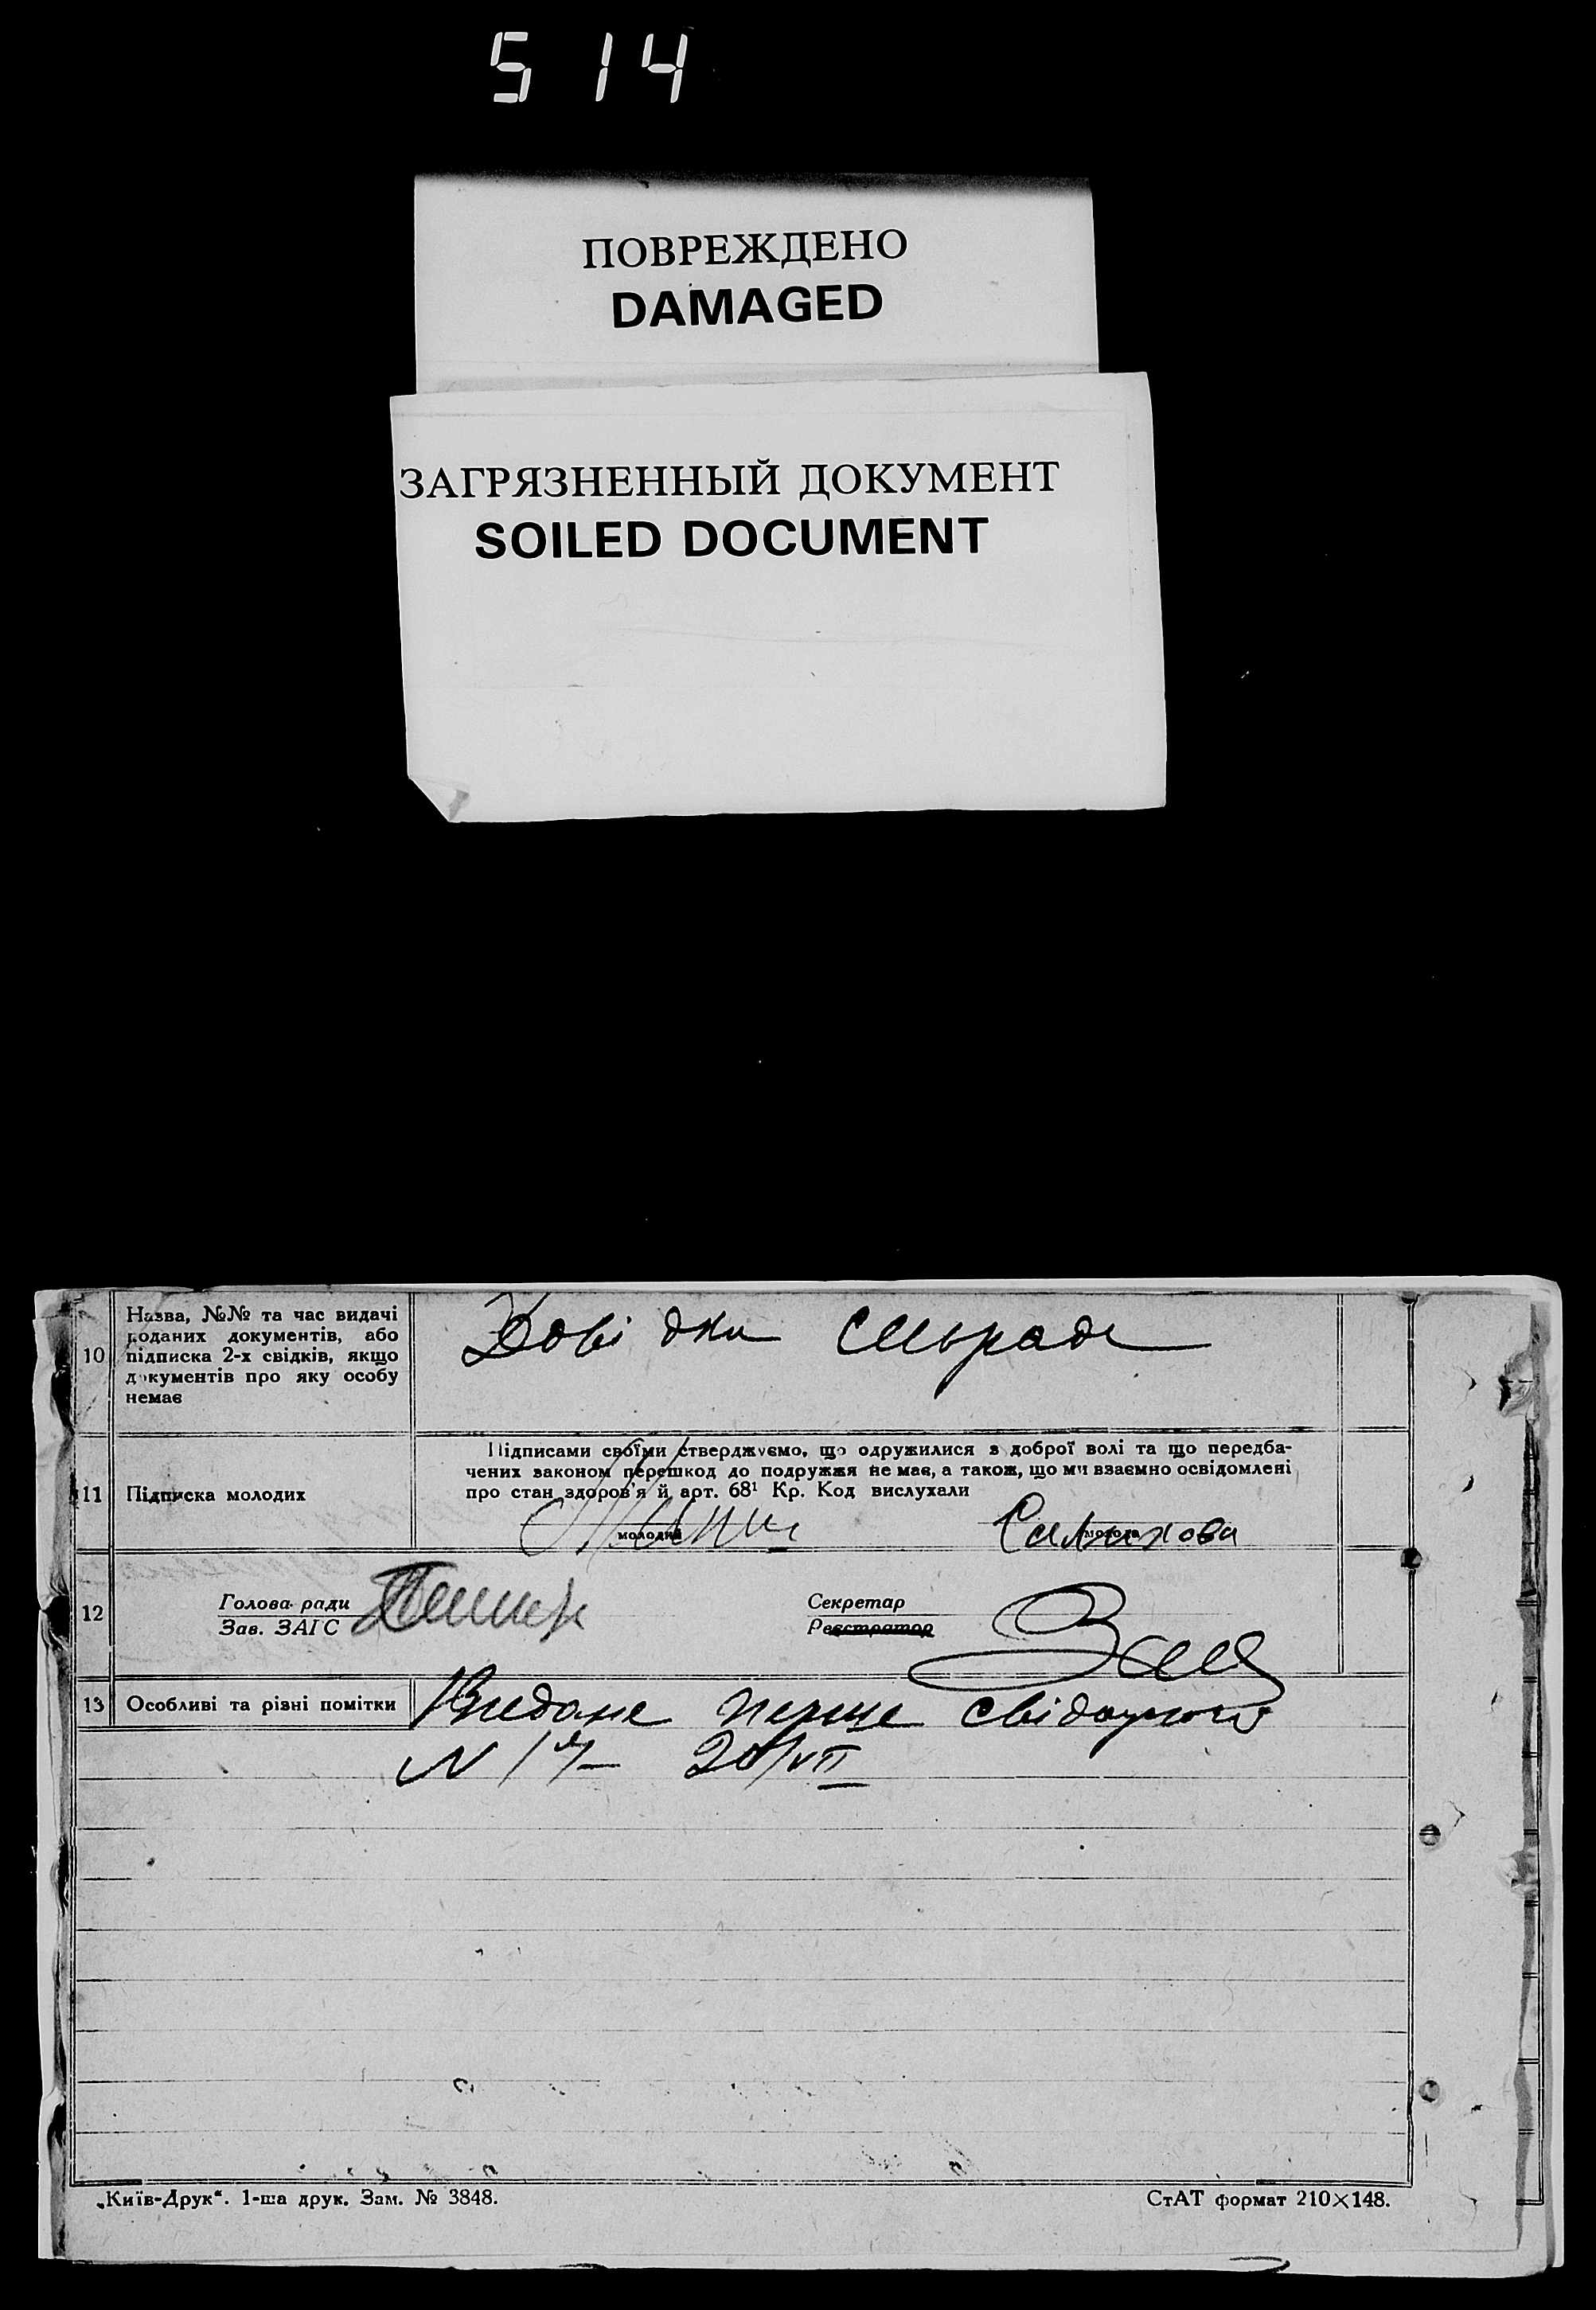 514
ПОВРЕЖДЕНО
DAMAGED
ЗАГРЯЗНЕННЫЙ ДОКУМЕНТ
SOILED DOCUMENT
10
Назва, №№ та час видачі
поданих документів, або
підписка 2-х свідків, якщо
документів про яку особу
немає
Довідки сільради
11
Підписка молодих
Підписами своїми стверджуємо, що одружилися з доброї волі та що передба-
чених законом перешкод до подружжя не має, а також, що ми взаємно освідомлені
про стан здоров'я й арт. 68¹ Кр. Код вислухали
молодий
молода
Салихова
12
Голова ради
Зав. ЗАГС
Секретар
Реєстратор
13
Особливі та різні помітки
Видане перше свідоцтво
N 17 20/VII
„Київ-Друк“. 1-ша друк. Зам. № 3848.
СтАТ формат 210×148.